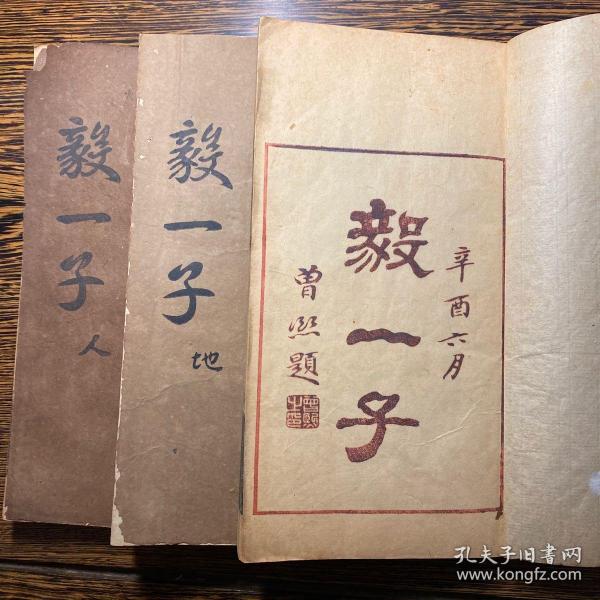 毅一子
人
毅一子
地
辛酉六月
毅一子
曾熙題
孔夫子旧书网
www.kongfz.com